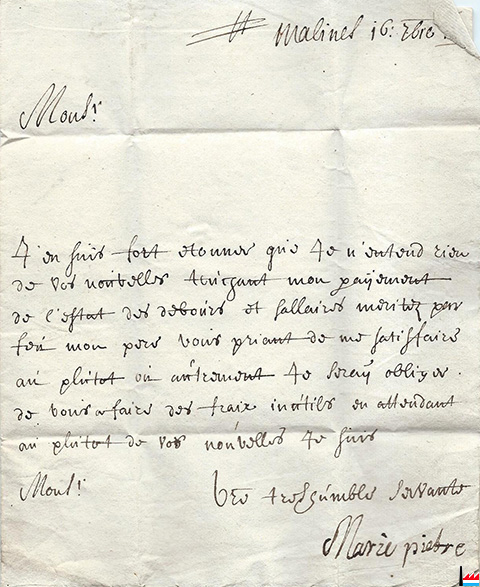 Malines 16: Xbre
Monsr
J'en suis fort etonnee que Je n'entend rien
de vos nouvelles touchant mon payement
de l'estat des debours et sallaires meritez par
feu mon pere vous priant de me satisfaire
au plutot ou autrement Je seray obligee
de vous faire des fraix inutils en attendant
au plutot de vos nouvelles Je suis
Monsr Vre treshumble servante
Marie pietre